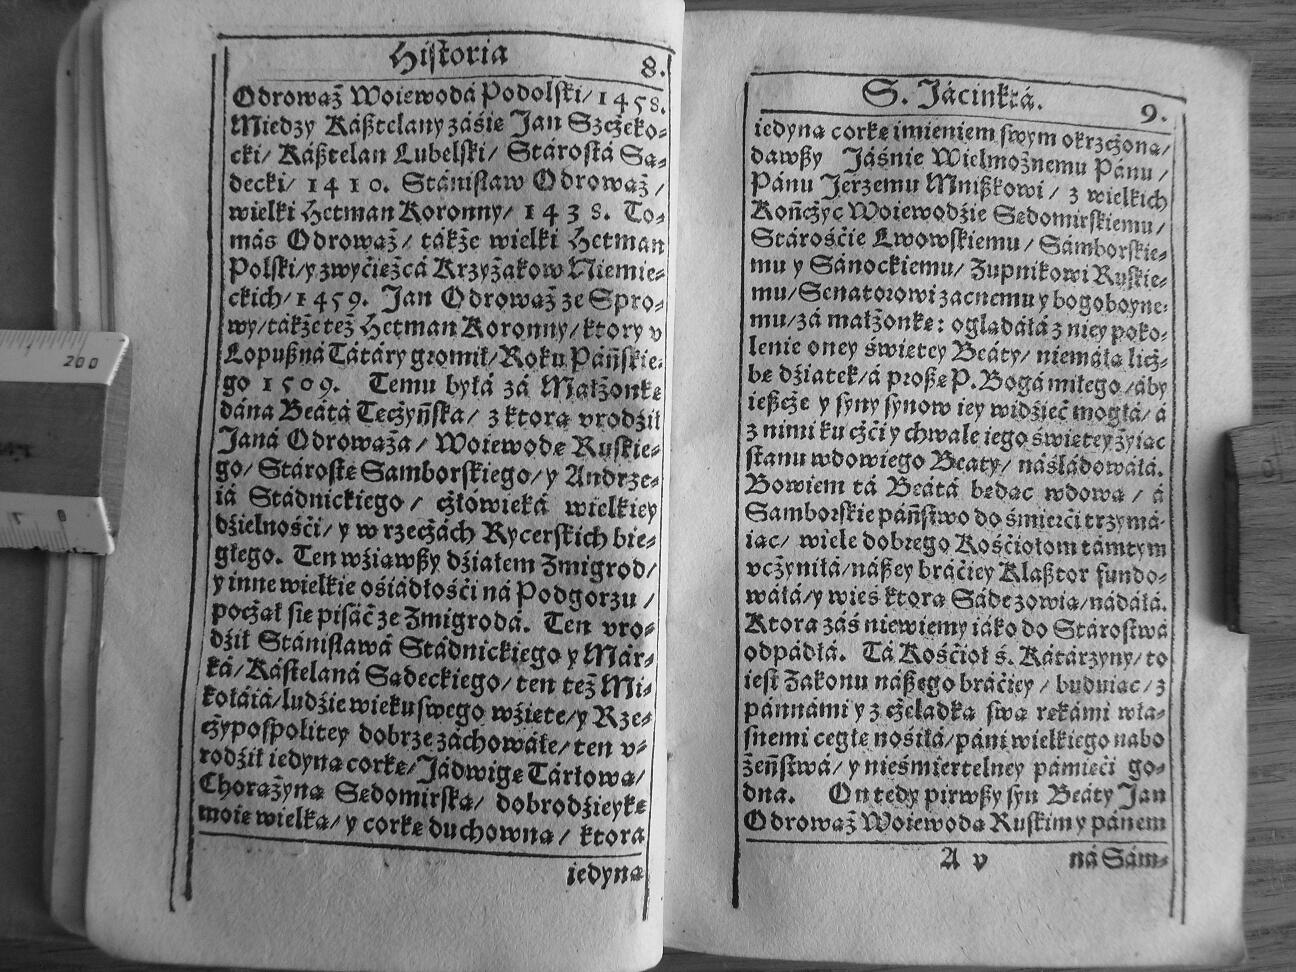 Historia
8.
Odrowąż Woiewodá Podolski/ 1458.
Miedzy Káßtelany záśie Jan Szcżeko⸗
cki/ Káßtelan Lubelski/ Stárostá Są⸗
decki/ 1410. Stánisław Odrowąż/
wielki Hetman Koronny/ 1438. To⸗
más Odrowąż/ tákże wielki Hetman
Polski/ y zwyćiężcá Krzyżakow Niemie⸗
ckich/ 1459. Jan Odrowąż ze Spro⸗
wy/ tákże też Hetman Koronny/ ktory v
Łopußná Tátáry gromił/ Roku Páńskie⸗
go 1509. Temu byłá zá Małżonkę
dána Beátá Tęcżyńska/ z ktorą vrodźił
Janá Odrowążá/ Woiewodę Ruskie⸗
go/ Stárostę Samborskiego/ y Andrze⸗
iá Stádnickiego/ cżłowieká wielkiey
dźielnośći/ y w rzecżách Rycerskich bie⸗
głego. Ten wźiąwßy dźiałem Zmigrod/
y inne wielkie ośiádłośći ná Podgorzu/
pocżął się pisáć ze Zmigrodá. Ten vro⸗
dźił Stánisławá Stádnickiego y Már⸗
ká/ Kástelaná Sądeckiego/ ten też Mi⸗
kołáiá/ ludźie wieku swego wźięte/ y Rze⸗
cżypospolitey dobrze záchowáłe/ ten v⸗
rodźił iedyną corkę/ Jádwigę Tárłową/
Chorążyną Sędomirską/ dobrodźieykę
moię wielką/ y corkę duchowną/ ktora
iedyną
S. Jácinktá.
9.
iedyną corkę imieniem swym okrzcżoną/
dawßy Jáśnie Wielmożnemu Pánu/
Pánu Jerzemu Mnißkowi/ z wielkich
Końcżyc Woiewodźie Sędomirskiemu/
Stárośćie Lwowskiemu/ Sámborskie⸗
mu y Sánockiemu/ Zupnikowi Ruskie⸗
mu/ Senatorowi zacnemu y bogoboyne⸗
mu/ zá małżonkę: oglądáłá z niey poko⸗
lenie oney świętey Beáty/ niemáłą licż⸗
bę dźiatek/ á proßę P. Bogá miłego/ áby
ießcże y syny synow iey widźieć mogłá/ á
z nimi ku cżći y chwale iego świętey żyiąc
stanu wdowiego Beaty/ náśládowáłá.
Bowiem tá Beátá będąc wdową/ á
Samborskie páństwo do śmierći trzymá⸗
iąc/ wiele dobrego Kośćiołom támtym
vcżyniłá/ náßey bráćiey Klaßtor fundo⸗
wałá/ y wieś ktorą Sądę zowią/ nádáłá.
Ktora záś niewiemy iáko do Stárostwá
odpádłá. Tá Kośćioł ś. Kátárzyny/ to
iest Zakonu náßego bráćiey/ buduiąc/ z
pánnámi y z cżeladką swą rękámi wła⸗
snemi cegłę nośiłá/ páni wielkiego nabo
żeństwá/ y nieśmiertelney pámięći go⸗
dna. On tedy pirwßy syn Beáty Jan
Odrowąż Woiewoda Ruskim y pánem
A v
ná Sám⸗
200